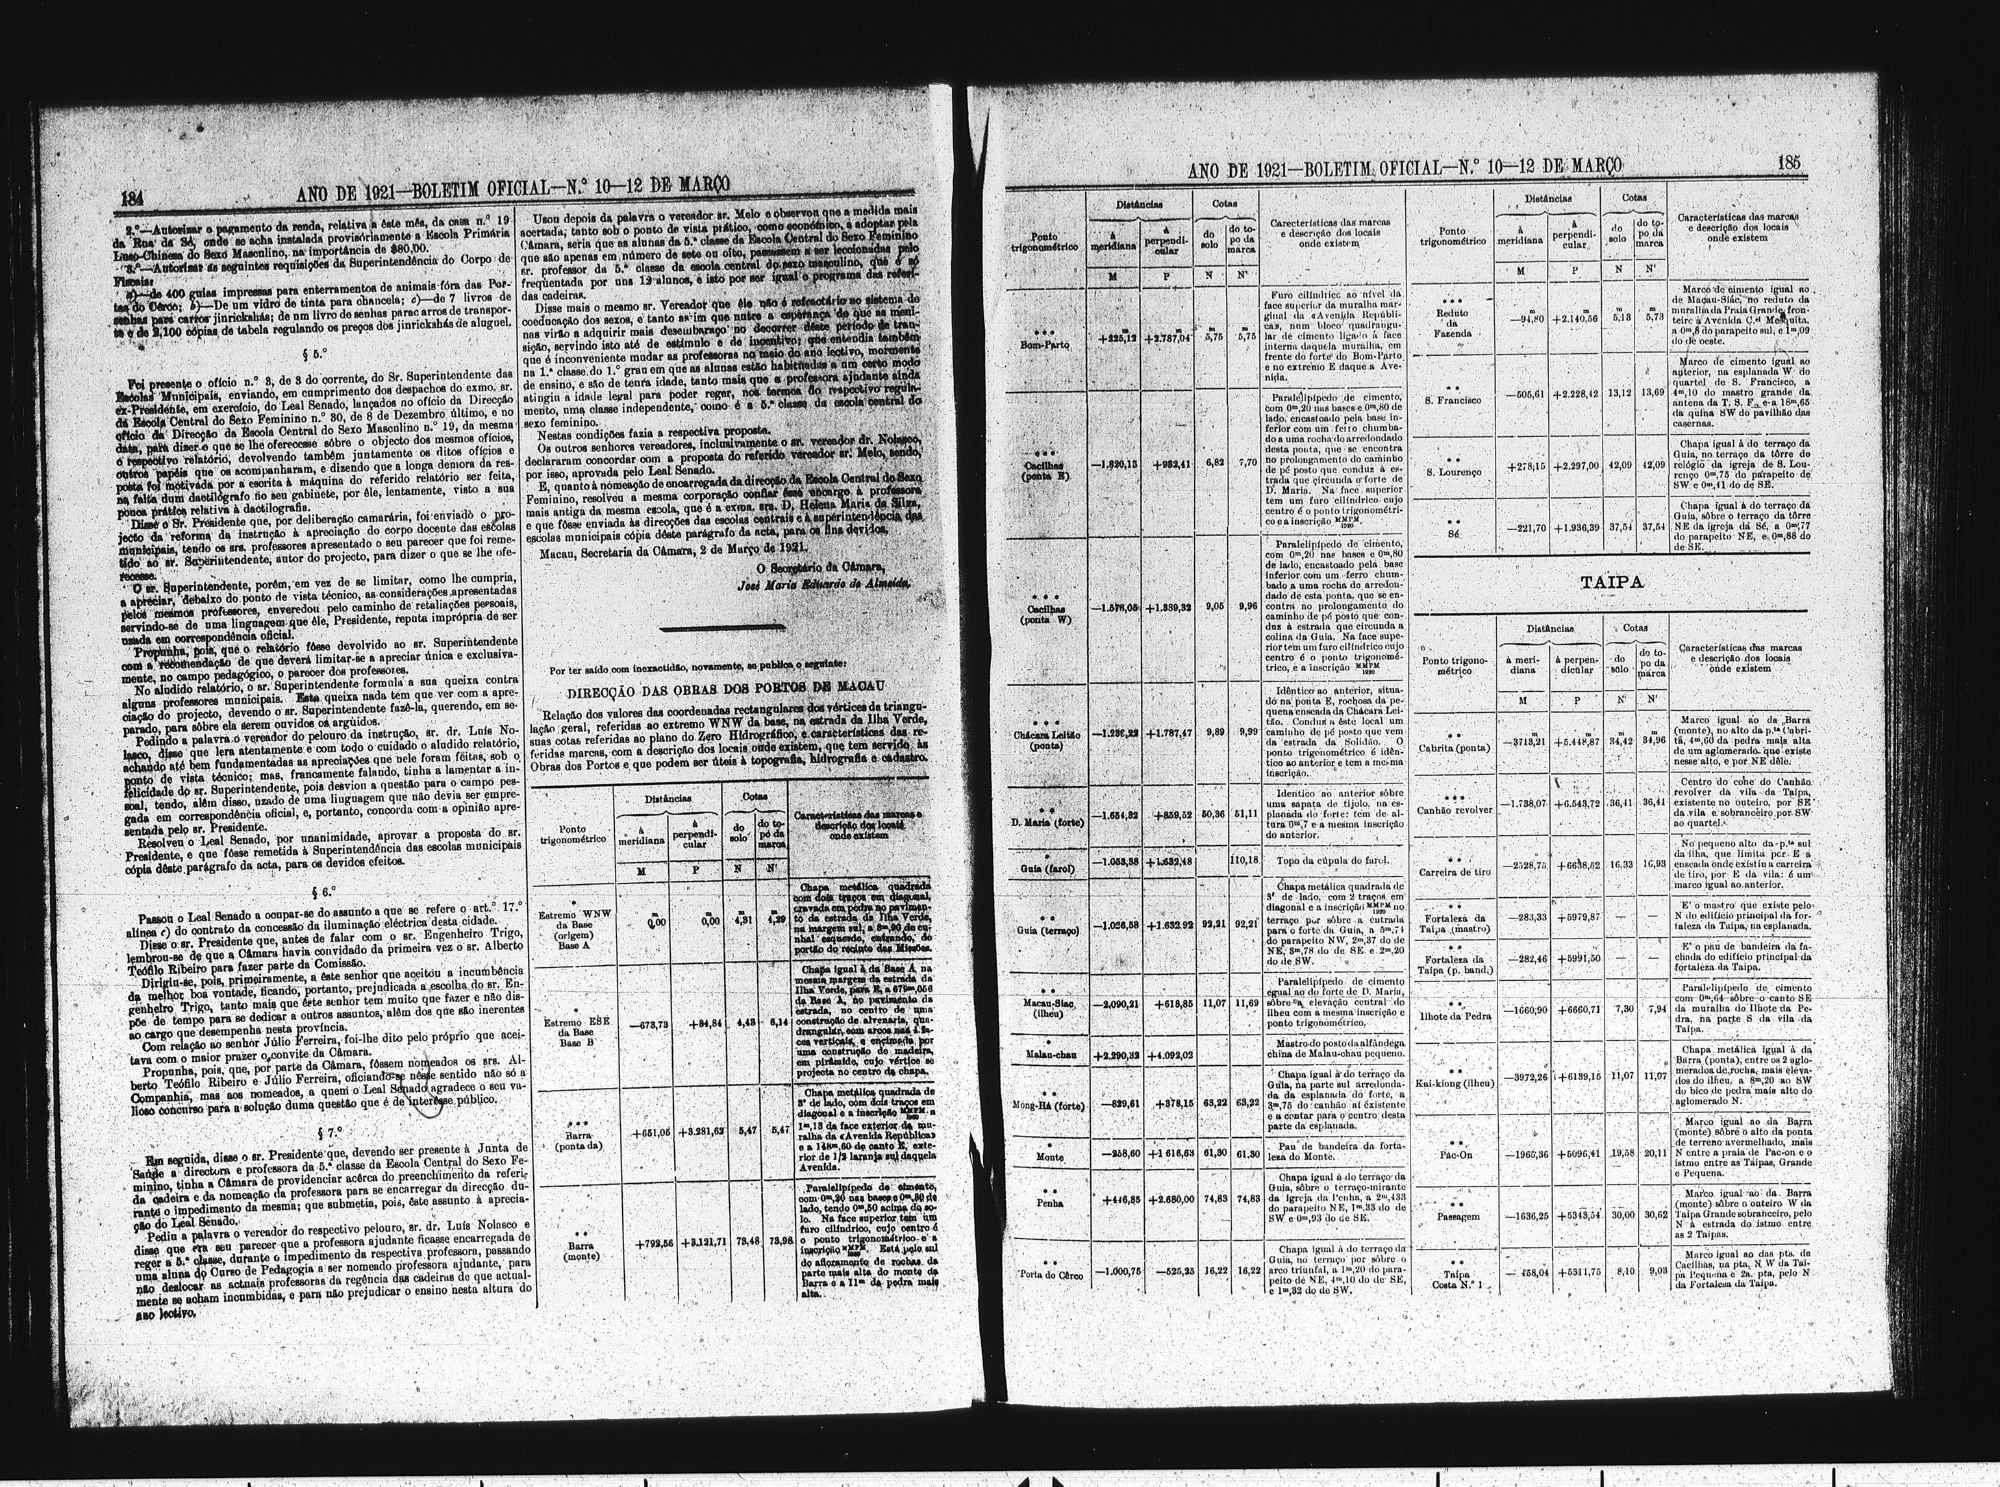 184
ANO DE 1921—BOLETIM OFICIAL—N.º 10—12 DE MARÇO
2.º—Autorizar o pagamento da renda, relativa a êste mês, da casa n.º 19
da Rua da Sé, onde se acha instalada provisóriamente a Escola Primária
Luso-Chinesa do Sexo Masculino, na importância de $80,00.
3.º—Autorizar as seguintes requisições da Superintendência do Corpo de
Fiscais:
a)—de 400 guias impressas para enterramentos de animais fóra das Por-
tas do Cêrco; b)—De um vidro de tinta para chancela; c)—de 7 livros de
senhas para carros jinrickshás; de um livro de senhas parac arros de transpor-
te e de 2,100 cópias de tabela regulando os preços dos jinrickshás de aluguel.
§ 5.º
Foi presente o ofício n.º 3, de 3 do corrente, do Sr. Superintendente das
Escolas Municipais, enviando, em cumprimento dos despachos do exmo. sr.
ex-Presidente, em exercício, do Leal Senado, lançados no ofício da Direcção
da Escola Central do Sexo Feminino n.º 30, de 8 de Dezembro último, e no
ofício da Direcção da Escola Central do Sexo Masculino n.º 19, da mesma
data, para dizer o que se lhe oferecesse sôbre o objecto dos mesmos ofícios,
o respectivo relatório, devolvendo também juntamente os ditos ofícios e
outros papéis que os acompanharam, e dizendo que a longa demora da res-
posta foi motivada por a escrita à máquina do referido relatório ser feita,
na falta dum dactilógrafo no seu gabinete, por êle, lentamente, visto a sua
pouca prática relativa à dactilografia.
Disse o Sr. Presidente que, por deliberação camarária, foi enviado o pro-
jecto da reforma da instrução à apreciação do corpo docente das escolas
municipais, tendo os srs. professores apresentado o seu parecer que foi reme-
tido ao sr. Superintendente, autor do projecto, para dizer o que se lhe ofe-
recesse.
O sr. Superintendente, porêm, em vez de se limitar, como lhe cumpria,
a apreciar, debaixo do ponto de vista técnico, as considerações apresentadas
pelos mesmos professores, enveredou pelo caminho de retaliações pessoais,
servindo-se de uma linguagem que êle, Presidente, reputa imprópria de ser
usada em correspondência oficial.
Propunha, pois, que o relatório fôsse devolvido ao sr. Superintendente
com a recomendação de que deverá limitar-se a apreciar única e exclusiva-
mente, no campo pedagógico, o parecer dos professores.
No aludido relatório, o sr. Superintendente formula a sua queixa contra
alguns professores municipais. Esta queixa nada tem que ver com a apre-
ciação do projecto, devendo o sr. Superintendente fazê-la, querendo, em se-
parado, para sôbre ela serem ouvidos os argüidos.
Pedindo a palavra o vereador do pelouro da instrução, sr. dr. Luís No-
lasco, disse que lera atentamente e com todo o cuidado o aludido relatório,
achando até bem fundamentadas as apreciações que nele foram feitas, sob o
ponto de vista técnico; mas, francamente falando, tinha a lamentar a in-
felicidade do sr. Superintendente, pois desviou a questão para o campo pes-
soal, tendo, além disso, uzado de uma linguagem que não devia ser empre-
gada em correspondência oficial, e, portanto, concorda com a opinião apre-
sentada pelo sr. Presidente.
Resolveu o Leal Senado, por unanimidade, aprovar a proposta do sr.
Presidente, e que fôsse remetida à Superintendência das escolas municipais
cópia dêste parágrafo da acta, para os devidos efeitos.
§ 6.º
Passou o Leal Senado a ocupar-se do assunto a que se refere o art.º 17.º
alínea c) do contrato da concessão da iluminação eléctrica desta cidade.
Disse o sr. Presidente que, antes de falar com o sr. Engenheiro Trigo,
lembrou-se de que a Câmara havia convidado da primeira vez o sr. Alberto
Teófilo Ribeiro para fazer parte da Comissão.
Dirigiu-se, pois, primeiramente, a êste senhor que aceitou a incumbência
da melhor boa vontade, ficando, portanto, prejudicada a escolha do sr. En-
genheiro Trigo, tanto mais que êste senhor tem muito que fazer e não dis-
põe de tempo para se dedicar a outros assuntos, além dos que são inerentes
ao cargo que desempenha nesta província.
Com relação ao senhor Júlio Ferreira, foi-lhe dito pelo próprio que acei-
tava com o maior prazer o convite da Câmara.
Propunha, pois, que, por parte da Câmara, fôssem nomeados os srs. Al-
berto Teófilo Ribeiro e Júlio Ferreira, oficiando-se nêsse sentido não só a
Companhia, mas aos nomeados, a quem o Leal Senado agradece o seu va-
lioso concurso para a solução duma questão que é de interêsse público.
§ 7.º
Em seguida, disse o sr. Presidente que, devendo ser presente à Junta de
Saúde a directora e professora da 5.ª classe da Escola Central do Sexo Fe-
minino, tinha a Câmara de providenciar acêrca do preenchimento da referi-
da cadeira e da nomeação da professora para se encarregar da direcção du-
rante o impedimento da mesma; que submetia, pois, êste assunto à aprecia-
ção do Leal Senado.
Pediu a palavra o vereador do respectivo pelouro, sr. dr. Luís Nolasco e
disse que era seu parecer que a professora ajudante ficasse encarregada de
reger a 5.ª classe, durante o impedimento da respectiva professora, passando
uma aluna do Curso de Pedagogia a ser nomeado professora ajudante, para
não deslocar as actuais professoras da regência das cadeiras de que actual-
mente se acham incumbidas, e para não prejudicar o ensino nesta altura do
ano lectivo.
Usou depois da palavra o vereador sr. Melo e observou que a medida mais
acertada; tanto sob o ponto de vista prático, como económico, a adoptar pela
Câmara, seria que as alunas da 5.ª classe da Escola Central do Sexo Feminino
que são apenas em número de sete ou oito, passassem a ser leccionadas pelo
sr. professor da 5.ª classe da escola central do sexo masculino, que é só
freqüentada por uns 12 alunos, e isto por ser igual o programa das referi-
das cadeiras.
Disse mais o mesmo sr. Vereador que êle não é refractário ao sistema de
coeducação dos sexos, e tanto assim que nutre a esperança de que as meni-
nas virão a adquirir mais desembaraço no decorrer dêste período de tran-
sição, servindo isto até de estímulo e de incentivo; que entendia também
que é inconveniente mudar as professoras no meio do ano lectivo, mormente
na 1.ª classe do 1.º grau em que as alunas estão habituadas a um certo modo
de ensino, e são de tenra idade, tanto mais que a professora ajudante ainda
atingiu a idade legal para poder reger, nos termos do respectivo regula-
mento, uma classe independente, como é a 5.ª classe da escola central do
sexo feminino.
Nestas condições fazia a respectiva proposta.
Os outros senhores vereadores, inclusivamente o sr. vereador dr. Nolasco,
declararam concordar com a proposta do referido vereador sr. Melo, sendo,
por isso, aprovada pelo Leal Senado.
E, quanto à nomeação de encarregada da direcção da Escola Central do Sexo
Feminino, resolveu a mesma corporação confiar êsse encargo à professora
mais antiga da mesma escola, que é a exma. sra. D. Helena Maria da Silva,
e que fôsse enviada às direcções das escolas centrais e à superintendência das
escolas municipais cópia dêste parágrafo da acta, para os fins devidos.
Macau, Secretaria da Câmara, 2 de Março de 1921.
O Secretário da Câmara,
José Maria Eduardo de Almeida.
Por ter saído com inexactidão, novamente, se publica o seguinte:
DIRECÇÃO DAS OBRAS DOS PORTOS DE MACAU
Relação dos valores das coordenadas rectangulares dos vértices da triangu-
lação geral, referidas ao extremo WNW da base, na estrada da Ilha Verde,
suas cotas referidas ao plano do Zero Hidrográfico, e características das re-
feridas marcas, com a descrição dos locais onde existem, que tem servido às
Obras dos Portos e que podem ser úteis à topografia, hidrografia e cadastro.
Ponto trigonométrico | Distâncias | Cotas | Características das marcas e descrição dos locais onde existem
à meridiana M | à perpendicular P | do solo N | do topo da marca N'
Estremo WNW da Base (origem) Base A | 0,00 | 0,00 | 4,31 | 4,29
Chapa metálica quadrada
com dois traços em diagonal,
cravada em pedra no pavimen-
to da estrada da Ilha Verde,
na margem sul, a 3m,90 do cu-
nhal esquerdo, entrando, do
portão do recinto das Missões.
Estremo ESE da Base Base B | —673,73 | +84,84 | 4,43 | 5,14
Chapa igual à da Base A, na
mesma margem da estrada da
Ilha Verde, para E, a 679m,056
da Base A, no pavimento da
estrada, no centro de uma
construção de alvenaria, qua-
drangular, com arcos nas 4 fa-
ces verticais, e encimada por
uma construção de madeira,
em pirâmide, cujo vértice se
projecta no centro da chapa.
Barra (ponta da) | +651,05 | +3.281,62 | 5,47 | 5,47
Chapa metálica quadrada de
3" de lado, com dois traços em
diagonal e a inscrição MMPM a
1m,13 da face exterior da mu-
ralha da «Avenida República»
e a 148m,60 do canto E, exte-
rior de 1/2 laranja sul daquela
Avenida.
Barra (monte) | +792,56 | +3.121,71 | 73,48 | 73,98
Paralelipípedo de cimento,
com 0m,20 nas bases e 0m,80 de
lado, tendo 0m,50 acima do so-
lo. Na face superior tem um
furo cilíndrico, cujo centro é
o ponto trigonométrico e a
inscrição MMPM. Está pelo sul
do afloramento de rochas da
parte mais alta do monte da
Barra e a 11m da pedra mais
alta.
ANO DE 1921—BOLETIM OFICIAL—N.º 10—12 DE MARÇO
185
Ponto trigonométrico | Distâncias | Cotas | Carecterísticas das marcas e descrição dos locais onde existem
à meridiana M | à perpendicular P | do solo N | do topo da marca N'
Bom-Parto | +225,12 | +2.787,04 | 5,75 | 5,75
Furo cilíndrico ao nível da
face superior da muralha mar-
ginal da «Avenida Repúbli-
ca», num bloco quadrangu-
lar de cimento ligado à face
interna daquela muralha, em
frente do forte do Bom-Parto
e no extremo E daquea Ave-
nida.
Cacilhas (ponta E) | —1.820,13 | +982,41 | 6,82 | 7,70
Paralelipípedo de cimento,
com 0m,20 nas bases e 0m,80 de
lado, encastoado pela base in-
ferior com um ferro chumba-
do a uma rocha do arredondado
desta ponta, que se encontra
no prolongamento do caminho
de pé posto que conduz à es-
trada que circunda o forte de
D. Maria. Na face superior
tem um furo cilíndrico cujo
centro é o ponto trigonométri-
co e a inscrição MMPM 1920
Cacilhas (ponta W) | —1.578,05 | +1.339,32 | 9,05 | 9,96
Paralelipípedo de cimento,
com 0m,20 nas bases e 0m,80
de lado, encastoado pela base
inferior com um ferro chum-
bado a uma rocha do arredon-
dado de esta ponta, que se en-
contra no prolongamento do
caminho de pé posto que con-
duz à estrada que circunda a
colina da Guia. Na face supe-
rior tem um furo cilíndrico cujo
centro é o ponto trigonomé-
trico, e a inscrição MMPM 1920
Chácara Leitão (ponta) | —1.236,22 | +1.787,47 | 9,89 | 9,99
Idêntico ao anterior, situa-
do na ponta E, rochosa da pe-
quena enseada da Chácara Lei-
tão. Conduz a êste local um
caminho de pé posto que vem
da estrada da Solidão. O
ponto trigonométrico é idên-
tico ao anterior e tem a mesma
inscrição.
D. Maria (forte) | —1.654,82 | +859,52 | 50,36 | 51,11
Identico ao anterior sôbre
uma sapata de tijolo, na es-
planada do forte: tem de al-
tura 0m,7 e a mesma inscrição
do anterior.
Guia (farol) | —1.053,38 | +1.632,48 | 110,18
Topo da cúpula do farol.
Guia (terraço) | —1.056,58 | +1.632 92 | 92,21 | 92,21
Chapa metálica quadrada de
3" de lado, com 2 traços em
diagonal e a inscrição MMPM 1920 no
terraço por sôbre a entrada
para o forte da Guia, a 5m,74
do parapeito NW, 2m,37 do de
NE, 8m,78 do de SE e 2m,20
do de SW.
Macau-Siac (ilheu) | —2.090,21 | +618,85 | 11,07 | 11,69
Paralelipípedo de cimento
igual ao do forte de D. Maria,
sôbre a elevação central do
ilheu com a mesma inscrição e
ponto trigonométrico.
Malau-chau | +2.290,32 | +4.092,02
Mastro do posto da alfândega
china de Malau-chau pequeno.
Mong-Há (forte) | —829,61 | +378,15 | 63,22 | 63,22
Chapa igual à do terraço da
Guia, na parte sul arredonda-
da da esplanada do forte, a
3m,75 do canhão aí existente
e a contar para o centro desta
parte da esplanada.
Monte | —258,60 | +1 616,63 | 61,30 | 61.30
Pau de bandeira da forta-
leza do Monte.
Penha | +446,85 | +2.680,00 | 74,83 | 74,83
Chapa igual à do terraço da
Guia, sôbre o terraço-mirante
da igreja da Penha, a 2m,433
do parapeito NE, 1m,33 do de
SW e 0m,93 do de SE.
Porta do Cêrco | —1.000,75 | —525,25 | 16,22 | 16,22
Chapa igual à do terraço da
Guia, no terraço por sôbre o
arco triunfal, a 1m,20 do para-
peito de NE, 4m,10 do de SE,
e 1m,32 do de SW.
Ponto trigonométrico | Distâncias | Cotas | Características das marcas e descrição dos locais onde existem
à meridiana M | à perpendicular P | do solo N | do topo da marca N'
Reduto da Fazenda | —94,80 | +2.140,56 | 5,13 | 5,73
Marco de cimento igual ao
de Macau-Siác, no reduto da
muralha da Praia Grande, fron-
teiro à Avenida C.el Mesquita,
a 0m,8 do parapeito sul, e 1m,09
do de oeste.
S. Francisco | —505,61 | +2.228,42 | 13,12 | 13,69
Marco de cimento igual ao
anterior, na esplanada W do
quartel de S. Francisco, a
4m,10 do mastro grande da
antena da T. S. F. e a 18m,65
da quina SW do pavilhão das
casernas.
S. Lourenço | +278,15 | +2.297,00 | 42,09 | 42,09
Chapa igual à do terraço da
Guia, no terraço da tôrre do
relógio da igreja de S. Lou-
renço 0m,75 do parapeito de
SW e 0m,41 do de SE.
Sé | —221,70 | +1.936,39 | 37,54 | 37,54
Chapa igual à do terraço da
Guia, sôbre o terraço da tôrre
NE da igreja da Sé, a 0m,77
do parapeito NE, e 0m,88 do
de SE.
TAIPA
Ponto trigonométrico | Distâncias | Cotas | Características das marcas e descrição dos locais onde existem
à meridiana M | à perpendicular P | do sólo N | do topo da marca N'
Cabrita (ponta) | —3713,21 | +5.448,87 | 34,42 | 34,96
Marco igual ao da Barra
(monte), no alto da p.ta Cabri-
tã, 4m,60 da pedra mais alta
de um aglomerado que existe
nesse alto, e por NE dêle.
Canhão revolver | —1.738,07 | +6.543,72 | 36,41 | 36,41
Centro do cone do Canhão
revolver da vila da Taipa,
existente no outeiro, por SE
da vila e sobranceiro por SW
ao quartel.
Carreira de tiro | —2528,75 | +6638,62 | 16,33 | 16,93
No pequeno alto da p.ta sul
da ilha, que limita por E a
enseada onde existiu a carreira
de tiro, por E da vila: é um
marco igual ao anterior.
Fortaleza da Taipa (mastro) | —283,33 | +5979,87
E' o mastro que existe pelo
N do edifício principal da for-
taleza da Taipa, na esplanada.
Fortaleza da Taipa (p. band.) | —282,46 | +5991,50 | — | —
E' o pau de bandeira da fa-
chada do edifício principal da
fortaleza da Taipa.
Ilhote da Pedra | —1660,90 | +6660,71 | 7,30 | 7,94
Paralelipípedo de cimento
com 0m,64 sôbre o canto SE
da muralha do Ilhote da Pe-
dra, na parte S da vila da
Taipa.
Kai-kiong (ilheu) | —3972,26 | +6139,15 | 11,07 | 11,07
Chapa metálica igual à da
Barra (ponta), entre os 2 aglo-
merados de rocha, mais eleva-
dos do ilheu, a 8m,20 ao SW
do bico de pedra mais alto do
aglomerado N.
Pac-On | —1965,36 | +5096,41 | 19,58 | 20,11
Marco igual ao da Barra
(monte) sôbre o alto da ponta
de terreno avermelhado, mais
N entre a praia de Pac-on e o
istmo entre as Táipas, Grande
e Pequena.
Passagem | —1636,25 | +5343,54 | 30,00 | 30,62
Marco igual ao da Barra
(monte) sôbre o outeiro W da
Taipa Grande sobranceiro, pelo
N à estrada do istmo entre
as 2 Taipas.
Taipa Costa N.º 1 | —458,04 | +5311,75 | 8,10 | 9,03
Marco igual ao das pta. de
Cacilhas, na pta, N W da Tai-
pa Pequena e 2a. pta, pelo N
da Fortaleza da Taipa.